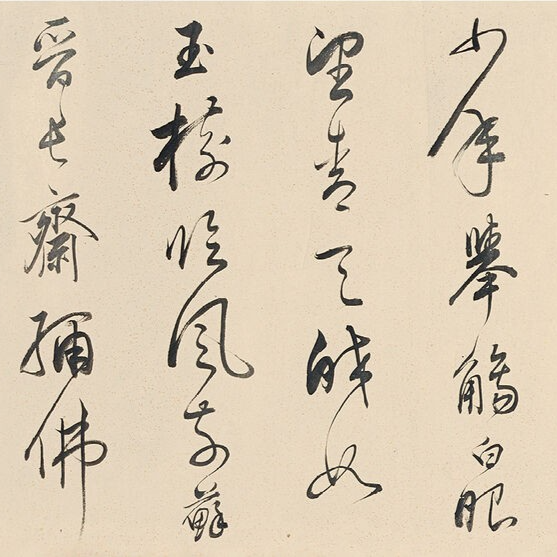 少年舉觴白眼
望青天皎如
玉樹臨風前蘇
晉長齋繡佛